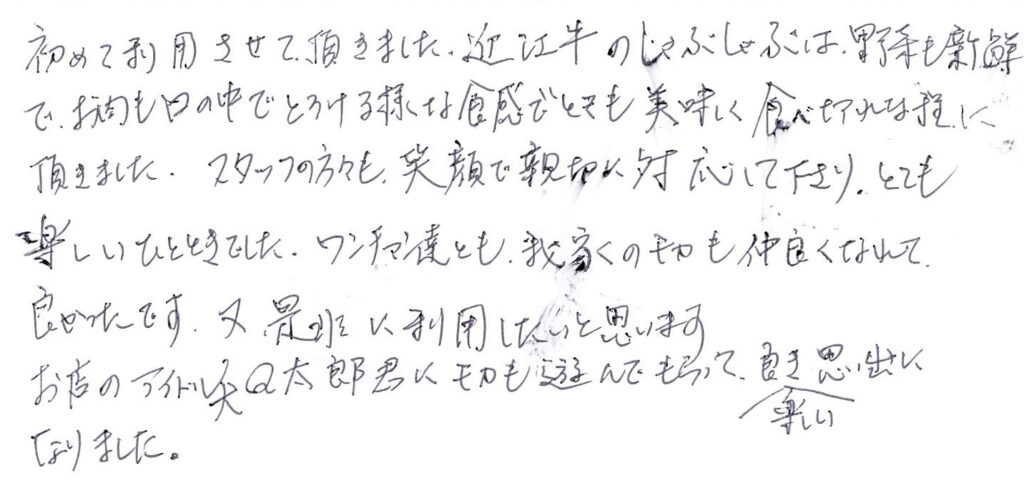 初めて利用させて頂きました。近江牛のしゃぶしゃぶは、野菜も新鮮
で、お肉も口の中でとろける様な食感でとても美味しく食べ切れな程に
頂きました。スタッフの方々も、笑顔で親切に対応して下さり、とても
楽しいひとときでした。ワンチャン達とも、我家くのモカも仲良くなれて
良かったです。又、是非に利用したいと思います
お店のアイドル犬Q太郎君にモカも遊んでもらって、良き思い出に
楽しい
なりました。